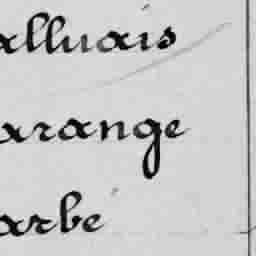 alluais
arange
arbé